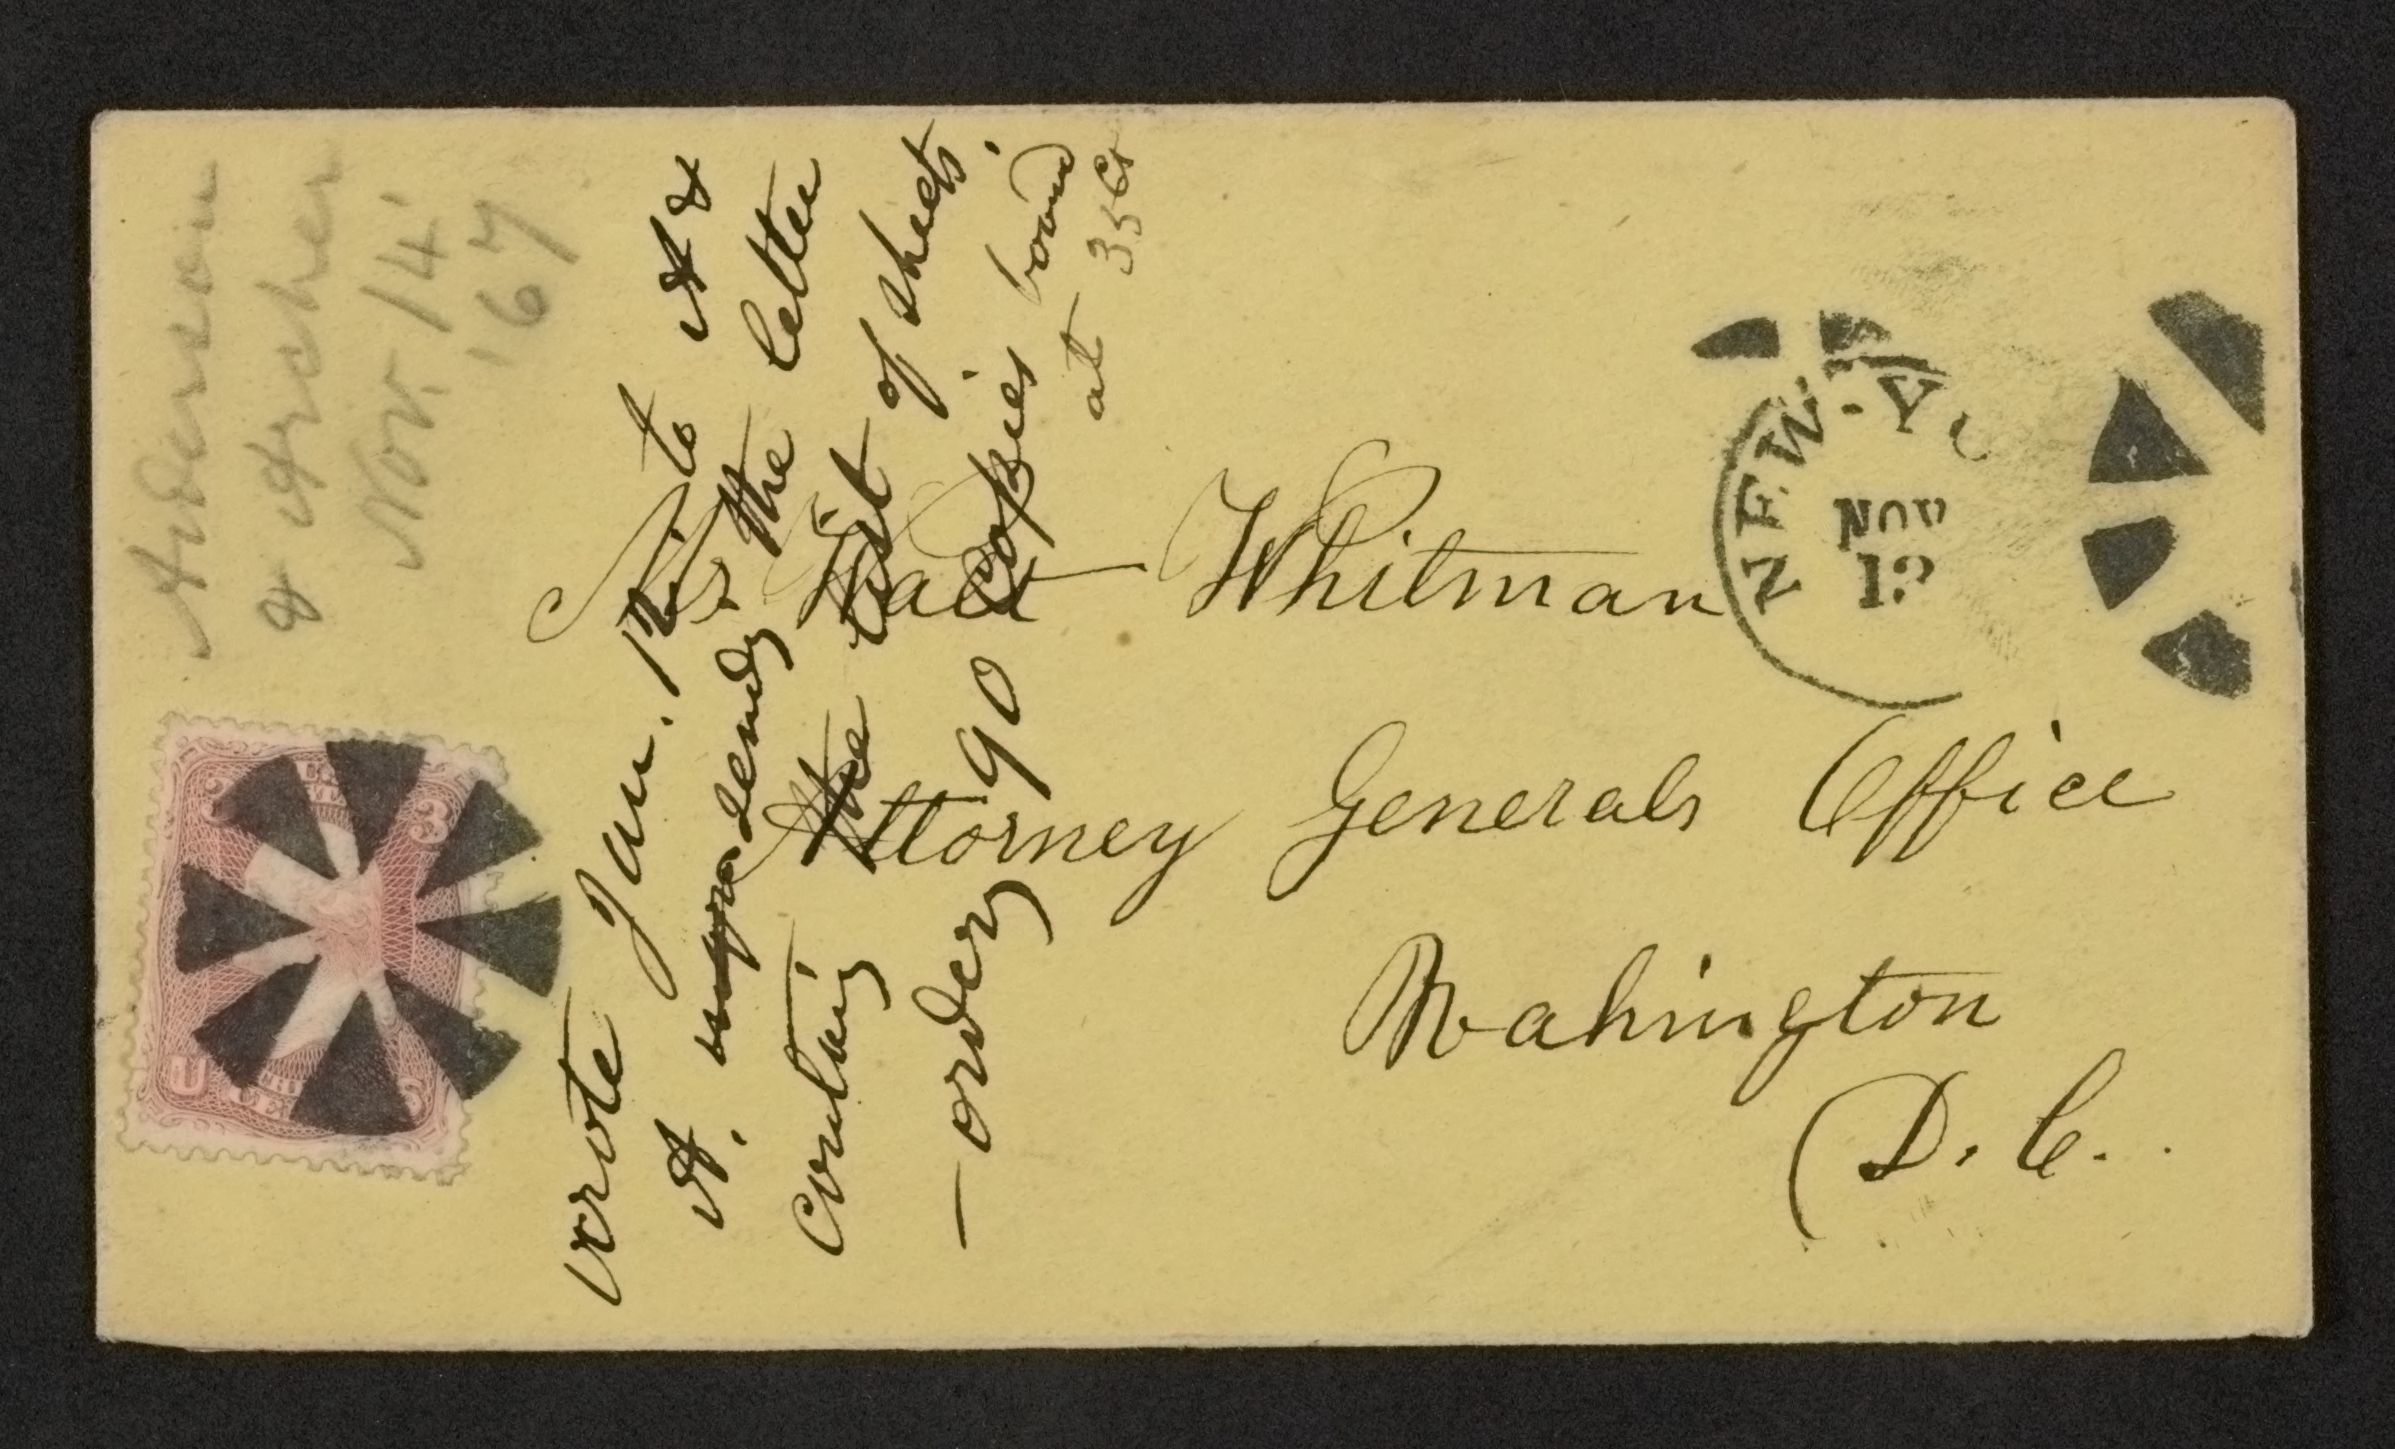 Anderson
& Archer
Nov. 14.
'67
wrote Jan. 12 to A &
A. sending the letter
cont'ing the list of sheets.
— ordery 90 copies bound
at 35 cts
Mr. Walt Whitman
Attorney Generals Office
Wahington
D. C.
NEW-YO
NOV
U
3